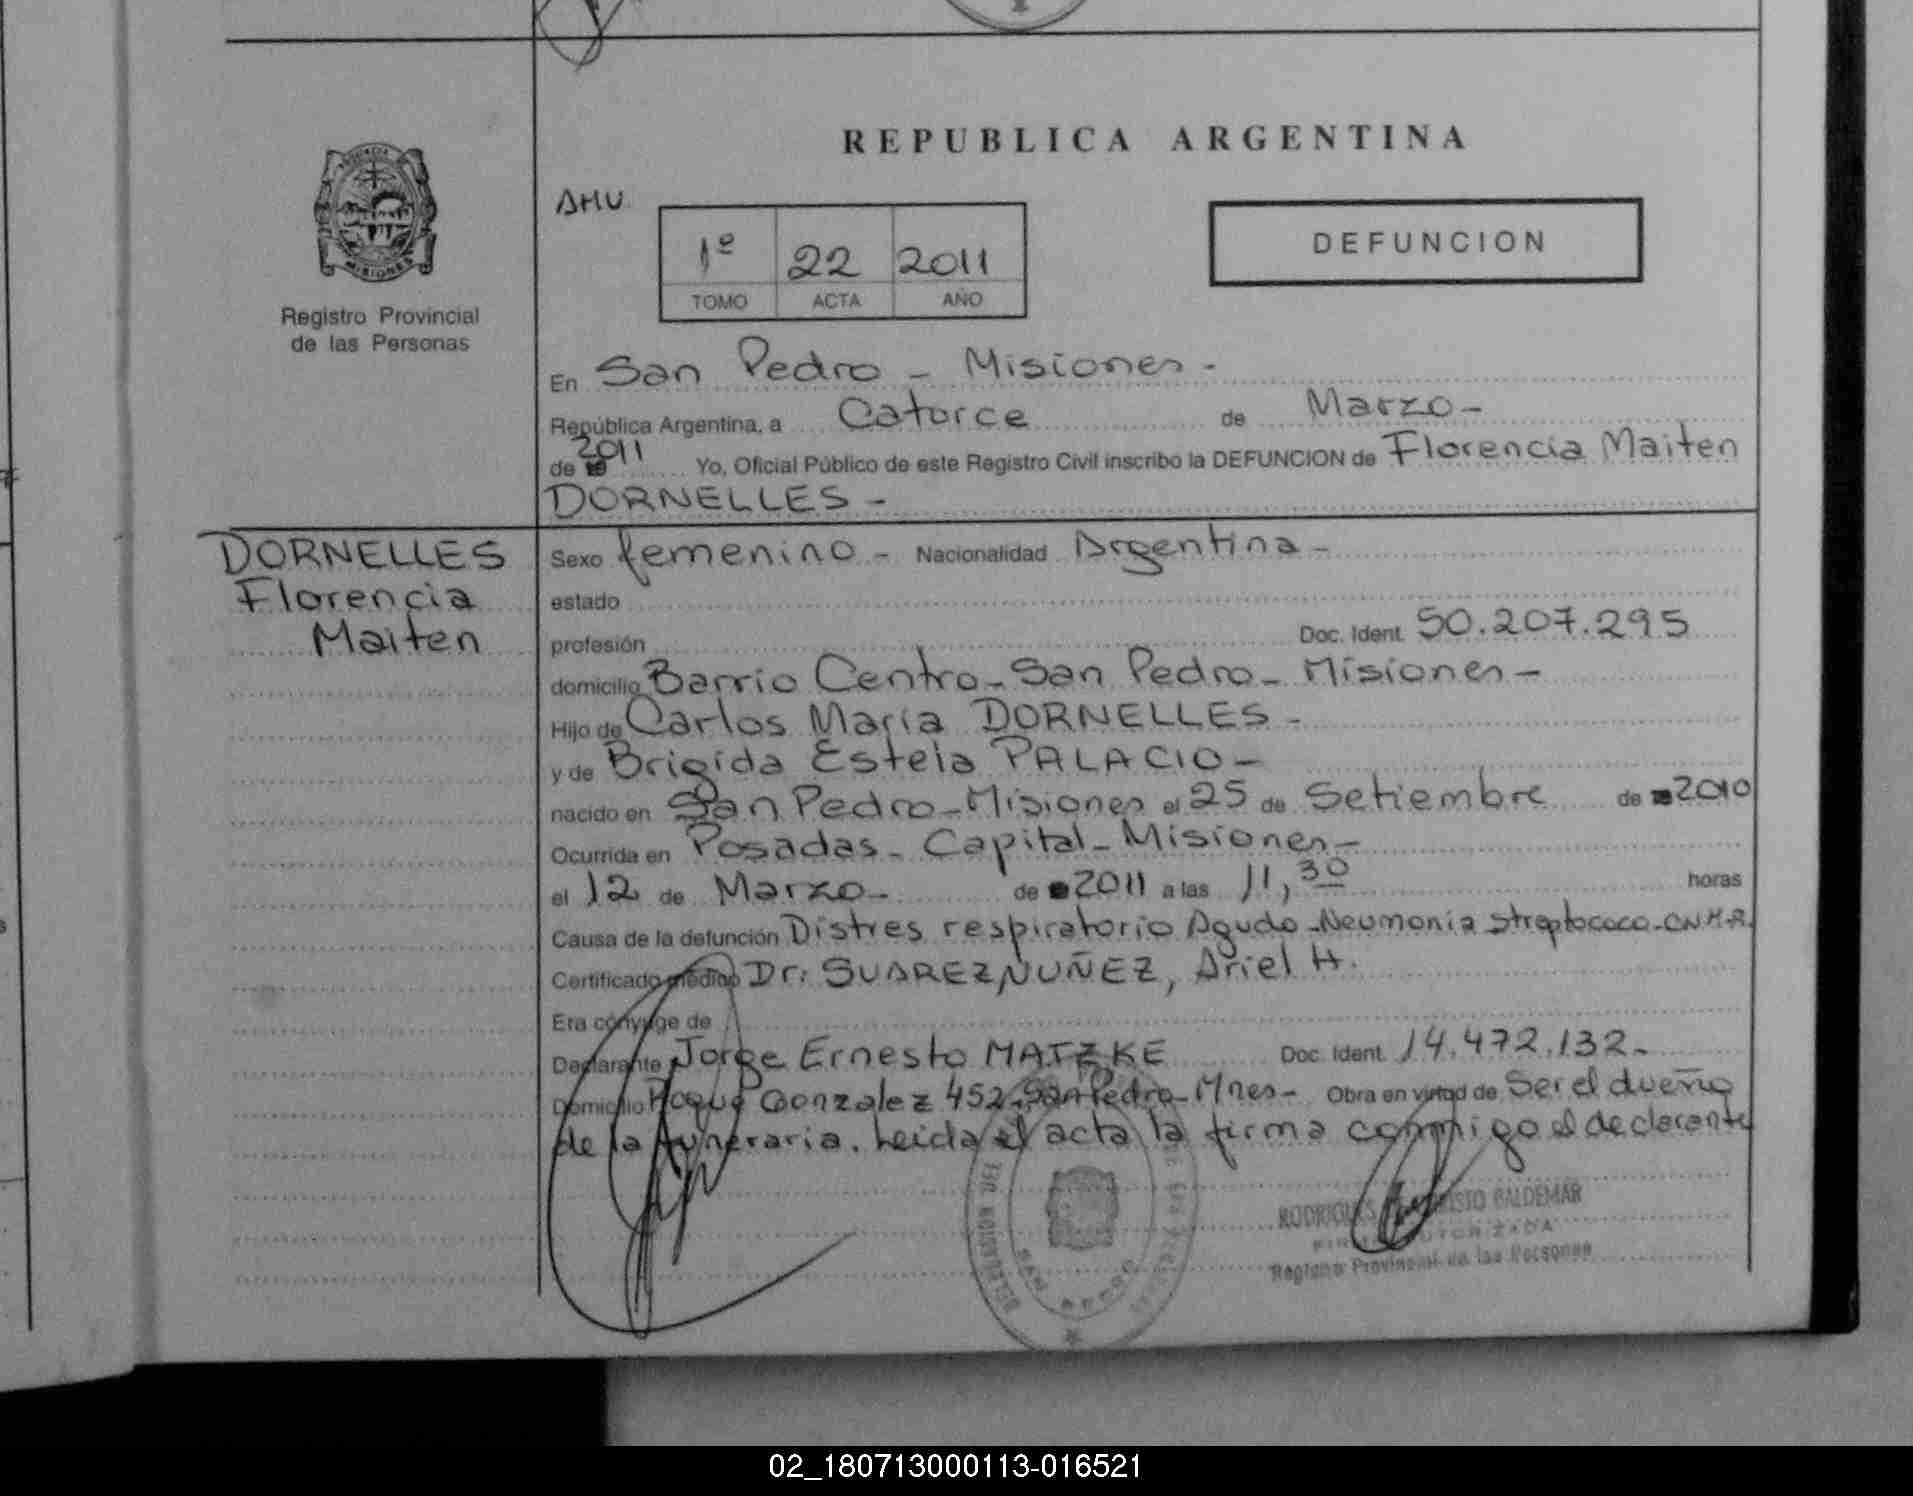 REPUBLICA ARGENTINA
MISIONES
Registro Provincial
de las Personas
AHU
1º 22 2011
TOMO ACTA AÑO
DEFUNCION
En San Pedro - Misiones -
República Argentina, a Catorce de Marzo -
de 2011 Yo, Oficial Público de este Registro Civil inscribo la DEFUNCION de Florencia Maiten
DORNELLES -
DORNELLES
Florencia
Maiten
Sexo femenino - Nacionalidad Argentina -
estado
profesión Doc. Ident. 50.207.295
domicilio Barrio Centro - San Pedro - Misiones -
Hijo de Carlos María DORNELLES -
y de Brigida Estela PALACIO -
nacido en San Pedro - Misiones el 25 de Setiembre de 2010
Ocurrida en Posadas - Capital - Misiones -
el 12 de Marzo - de 2011 a las 11,30 horas
Causa de la defunción Distres respiratorio Agudo - Neumonia Streptococo - CNMR.
Certificado médico Dr: SUAREZ NUÑEZ, Ariel H.
Era cónyuge de
Declarante Jorge Ernesto MATZKE Doc. Ident. 14.472.132 -
Domicilio Roque Gonzalez 452 - San Pedro - Mnes - Obra en virtud de Ser el dueño
de la funeraria. Leida el acta la firma conmigo el declarante
RODRIGUES BALDEMAR
Registro Provincial de las Personas
02_180713000113-016521